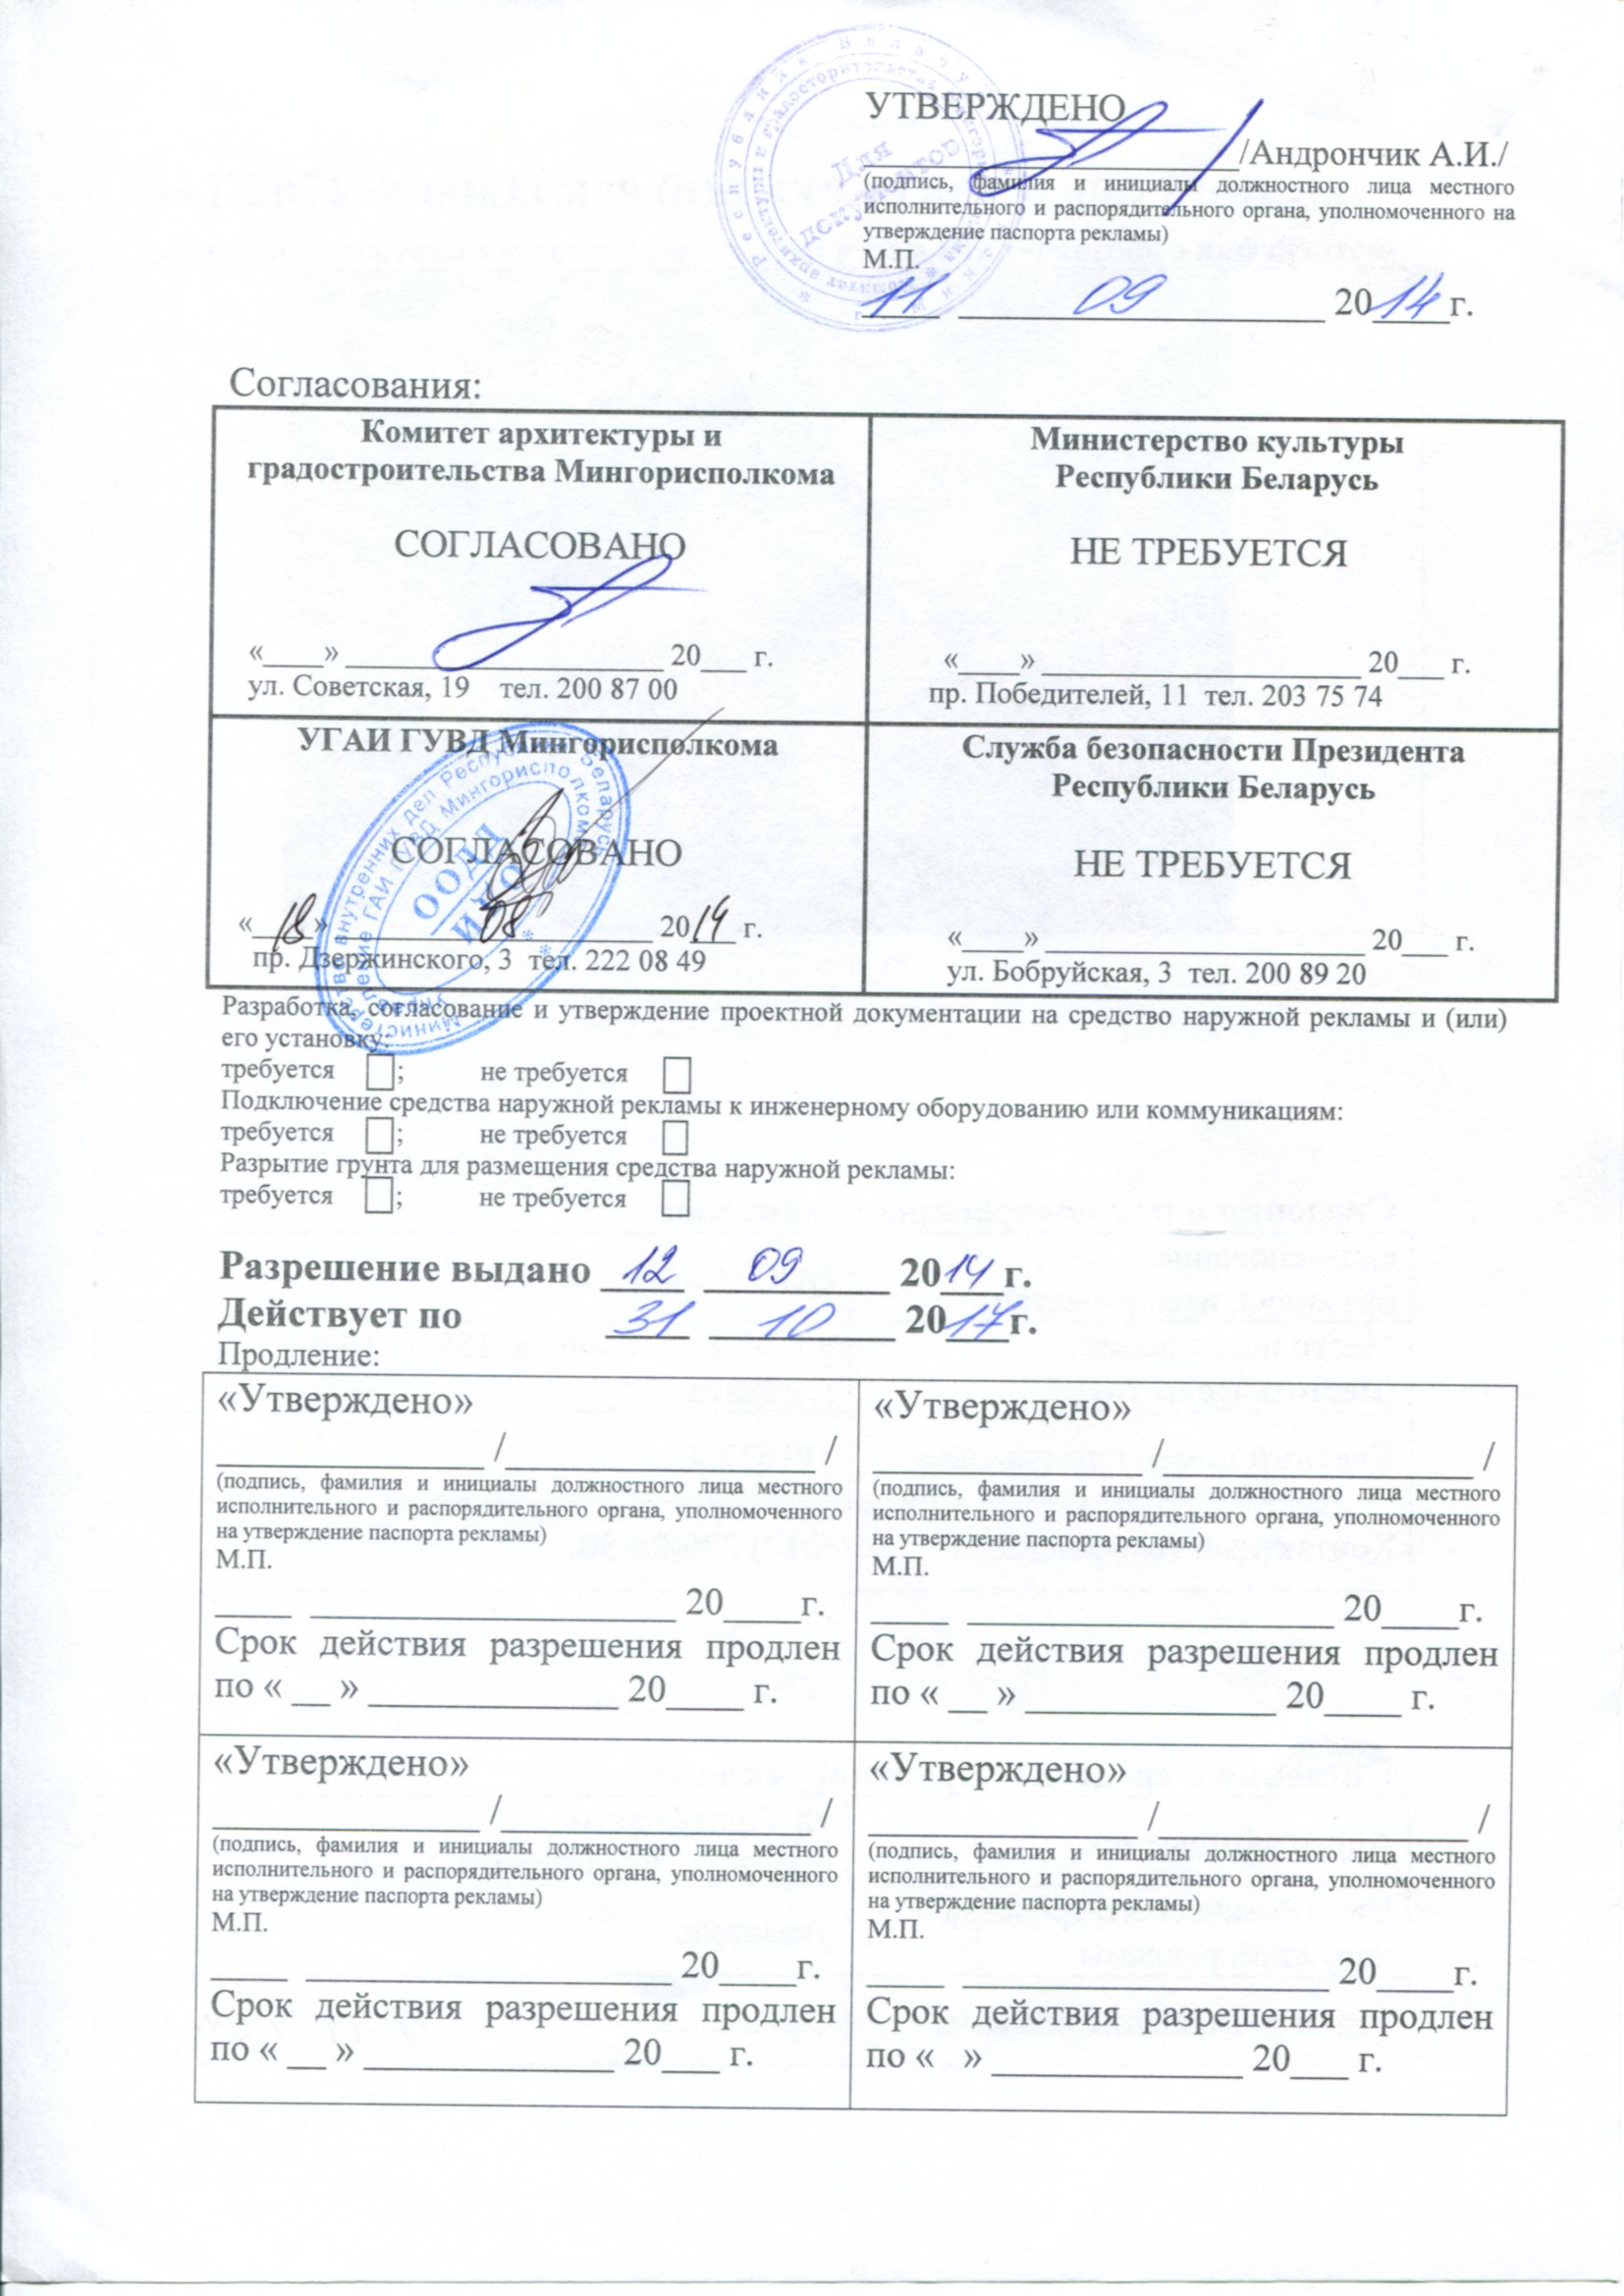 УТВЕРЖДЕНО
/Андрончик А.И./
(подпись, фамилия и инициалы должностного лица местного
исполнительного и распорядительного органа, уполномоченного на
утверждение паспорта рекламы)
М.П.
11 09 2014 г.
Для
документов
Согласования:
Комитет архитектуры и
градостроительства Мингорисполкома
СОГЛАСОВАНО
«____» ____________________ 20___ г.
ул. Советская, 19 тел. 200 87 00
Министерство культуры
Республики Беларусь
НЕ ТРЕБУЕТСЯ
«____» ____________________ 20___ г.
пр. Победителей, 11 тел. 203 75 74
УГАИ ГУВД Мингорисполкома
СОГЛАСОВАНО
«18» 08 2014 г.
пр. Дзержинского, 3 тел. 222 08 49
Министерство внутренних дел Республики Беларусь
Управление ГАИ ГУВД Мингорисполкома
ООДД
Служба безопасности Президента
Республики Беларусь
НЕ ТРЕБУЕТСЯ
«____» ____________________ 20___ г.
ул. Бобруйская, 3 тел. 200 89 20
Разработка, согласование и утверждение проектной документации на средство наружной рекламы и (или)
его установку:
требуется ☐; не требуется ☐
Подключение средства наружной рекламы к инженерному оборудованию или коммуникациям:
требуется ☐; не требуется ☐
Разрытие грунта для размещения средства наружной рекламы:
требуется ☐; не требуется ☐
Разрешение выдано 12 09 2014 г.
Действует по 31 10 2017 г.
Продление:
«Утверждено»
______________ /________________ /
(подпись, фамилия и инициалы должностного лица местного
исполнительного и распорядительного органа, уполномоченного
на утверждение паспорта рекламы)
М.П.
____ ___________________ 20____г.
Срок действия разрешения продлен
по « __ » _____________ 20____ г.
«Утверждено»
______________ /________________ /
(подпись, фамилия и инициалы должностного лица местного
исполнительного и распорядительного органа, уполномоченного
на утверждение паспорта рекламы)
М.П.
____ ___________________ 20____г.
Срок действия разрешения продлен
по « __ » _____________ 20____ г.
«Утверждено»
______________ /________________ /
(подпись, фамилия и инициалы должностного лица местного
исполнительного и распорядительного органа, уполномоченного
на утверждение паспорта рекламы)
М.П.
____ ___________________ 20____г.
Срок действия разрешения продлен
по « __ » _____________ 20___ г.
«Утверждено»
______________ /________________ /
(подпись, фамилия и инициалы должностного лица местного
исполнительного и распорядительного органа, уполномоченного
на утверждение паспорта рекламы)
М.П.
____ ___________________ 20____г.
Срок действия разрешения продлен
по « » _____________ 20___ г.